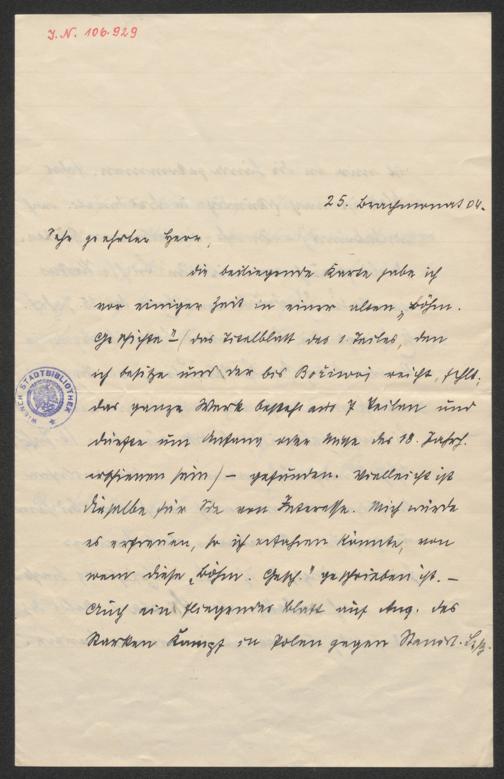 J.N. 106.929
25. Brachmonat 04.
Sehr geehrter Herr,
die beiliegende Karte habe ich
vor einiger Zeit in einer alten „Böhm.
Geschichte" (das Titelblatt des 1. Teiles, den
ich besitze und der bis Božiwoj reicht, fehlt;
das ganze Werk besteht aus 7 Teilen und
dürfte um Anfang oder Mitte des 18. Jahrh.
erschienen sein) – gefunden. Vielleicht ist
dieselbe für Sie von Interesse. Mich würde
es erfreuen, so ich erfahren könnte, von
wem diese „Böhm. Gesch." geschrieben ist. –
Auch ein fliegendes Blatt auf Aug. des
Starken Kampf in Polen gegen Stanisl.
WIENER STADTBIBLIOTHEK